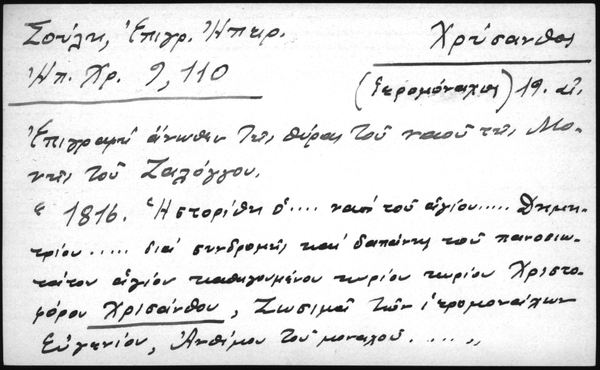 Σούλη, Ἐπιγρ. Ἠπειρ.
Χρύσανθος
Ἠπ. Χρ. 9, 110
(ἱερομόναχος) 19. αἰ.
Ἐπιγραφὴ ἄνωθεν τῆς θύρας τοῦ ναοῦ τῆς Μο-
νῆς τοῦ Ζαλόγγου.
" 1816. Ἡστορίθη ὁ.... ναὸς τοῦ ἁγίου..... Δημη-
τρίου ..... διὰ συνδρομῆς καὶ δαπάνης τοῦ πανοσιω-
τάτου ἁγίου καθηγουμένου κυρίου κυρίου Χριστο-
φόρου Χρισάνθου, Ζωσιμᾶ τῶν ἱερομονάχων
Εὐγενίου, Ἀνθίμου τοῦ μοναχοῦ. .... "